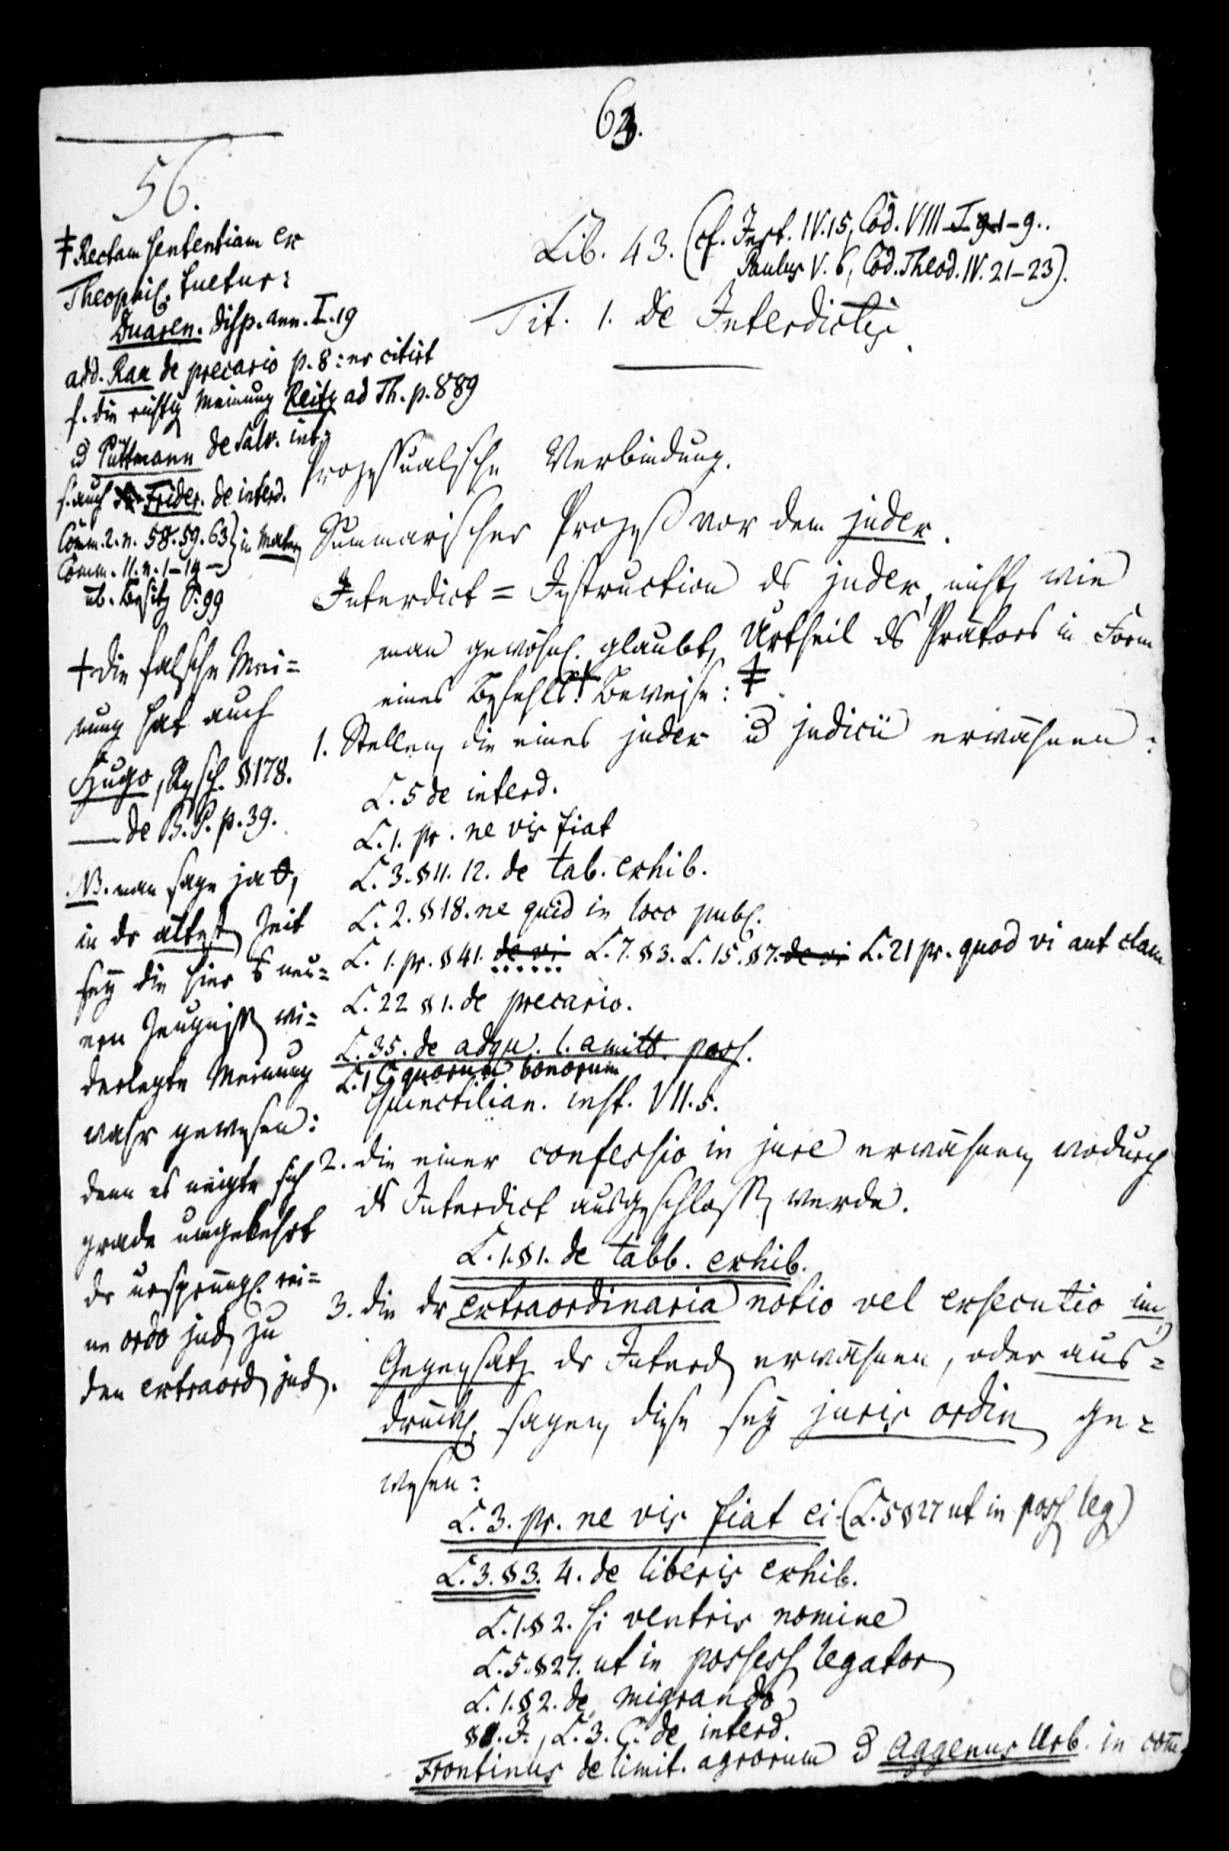 63.
56.
Lib. 43. (cf. Inst. IV. 15, Cod. VIII 1–9.
Paulus V. 6, Cod. Theod. IV. 21–23).
Tit. 1. De Interdictis.
‡ Rectam sententiam ex
Theophil. tuetur:
Duaren. disp. ann. I. 19
add. Rau de precario p. 8: er citirt
f. die richtig Meinung Reitz ad Th. p. 889
u Püttmann de Salv. int.
s. auch Frider. de interd.
Comm. 2. n. 58. 59. 63 } in
Comm. 11. n. 1–14 –
üb. Besitz S. 99
† die falsche Mei=
nung hat auch
Hugo, Rgsch. § 178.
— de B. P. p. 39.
NB. man sage ja
in dr ältest Zeit
sey die hier
nen Zeugniss wi=
derlegte Meinung
wahr gewesen:
denn es neigte sich
grade umgekehrt
dr ursprüngl. rei=
ne ordo jud. zu
den extraord jud.
Prozessualische Verbindung.
Summarischer Prozess vor dem judex.
Interdict = Instruction ds judex, nicht, wie
man gewöhnl. glaubt, Urtheil ds Prätors in Form
eines Befehls.† Beweise: ‡.
1. Stellen, die eines judex u judicii erwähnen:
L. 5 de interd.
L. 1. pr. ne vis fiat
L. 3. § 11. 12. de tab. exhib.
L. 2. § 18. ne quid in loco publ.
L. 1. pr. § 41. de vi L. 7. § 3. L. 15. § 7. de vi L. 21 pr. quod vi aut clam
L. 22 § 1. de precario.
L. 35. de adqu. l. amitt. poss.
L. 1 C. quorum bonorum
Quinctilian. inst. VII. 5.
2. die einer confessio in jure erwähnen, wodurch
ds Interdict ausgeschloss werde.
L. 1. § 1. de tabb. exhib.
3. die dr extraordinaria notio vel exsecutio im
Gegensatz dr Interd erwähnen, oder aus=
drückl. sagen, diese sey juris ordin ge=
wesen:
L. 3. pr. ne vis fiat ei (L. 5 § 27 ut in poss leg)
L. 3. § 3. 4. de liberis exhib.
L. 1. § 2. si ventris nomine
L. 5. § 27. ut in possess legator
L. 1. § 2. de migrando
J., L. 3. C. de interd.
Frontinus de limit. agrorum u Aggenus Urb. in com.